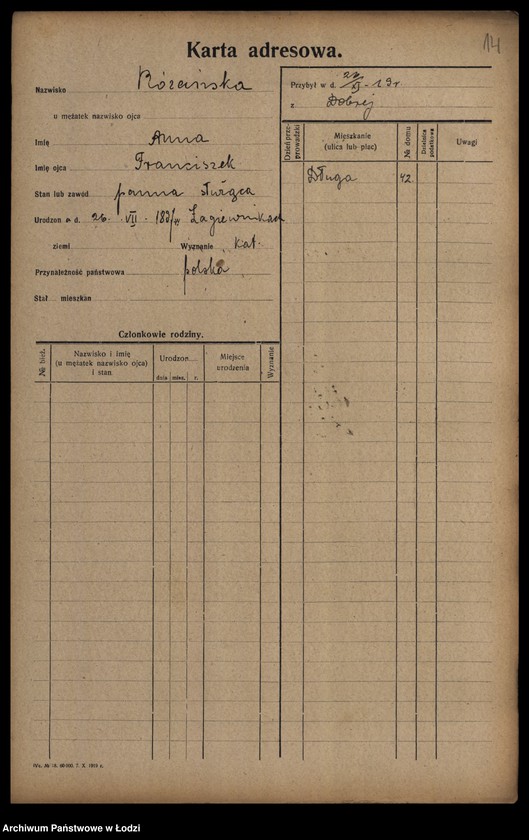 14
Karta adresowa.
Nazwisko Różańska
u mężatek nazwisko ojca
Imię Anna
Imię ojca Franciszek
Stan lub zawód panna służąca
Urodzon a d. 26. VII. w Łagiewnikach
ziemi Wyznanie kat.
Przynależność państwowa polska
Stał mieszkan
Przybył w d. XI-19r
z Dobrej
Dzień prze-prowadzki
Mieszkanie
(ulica lub plac)
№ domu
Dzielnica podatkowa
Uwagi
Długa 42
Członkowie rodziny.
№ bież.
Nazwisko i imię
(u mężatek nazwisko ojca)
i stan
Urodzon
dnia mies. r.
Miejsce
urodzenia
Wyznanie
7. X. 1919 r.
Archiwum Państwowe w Łodzi